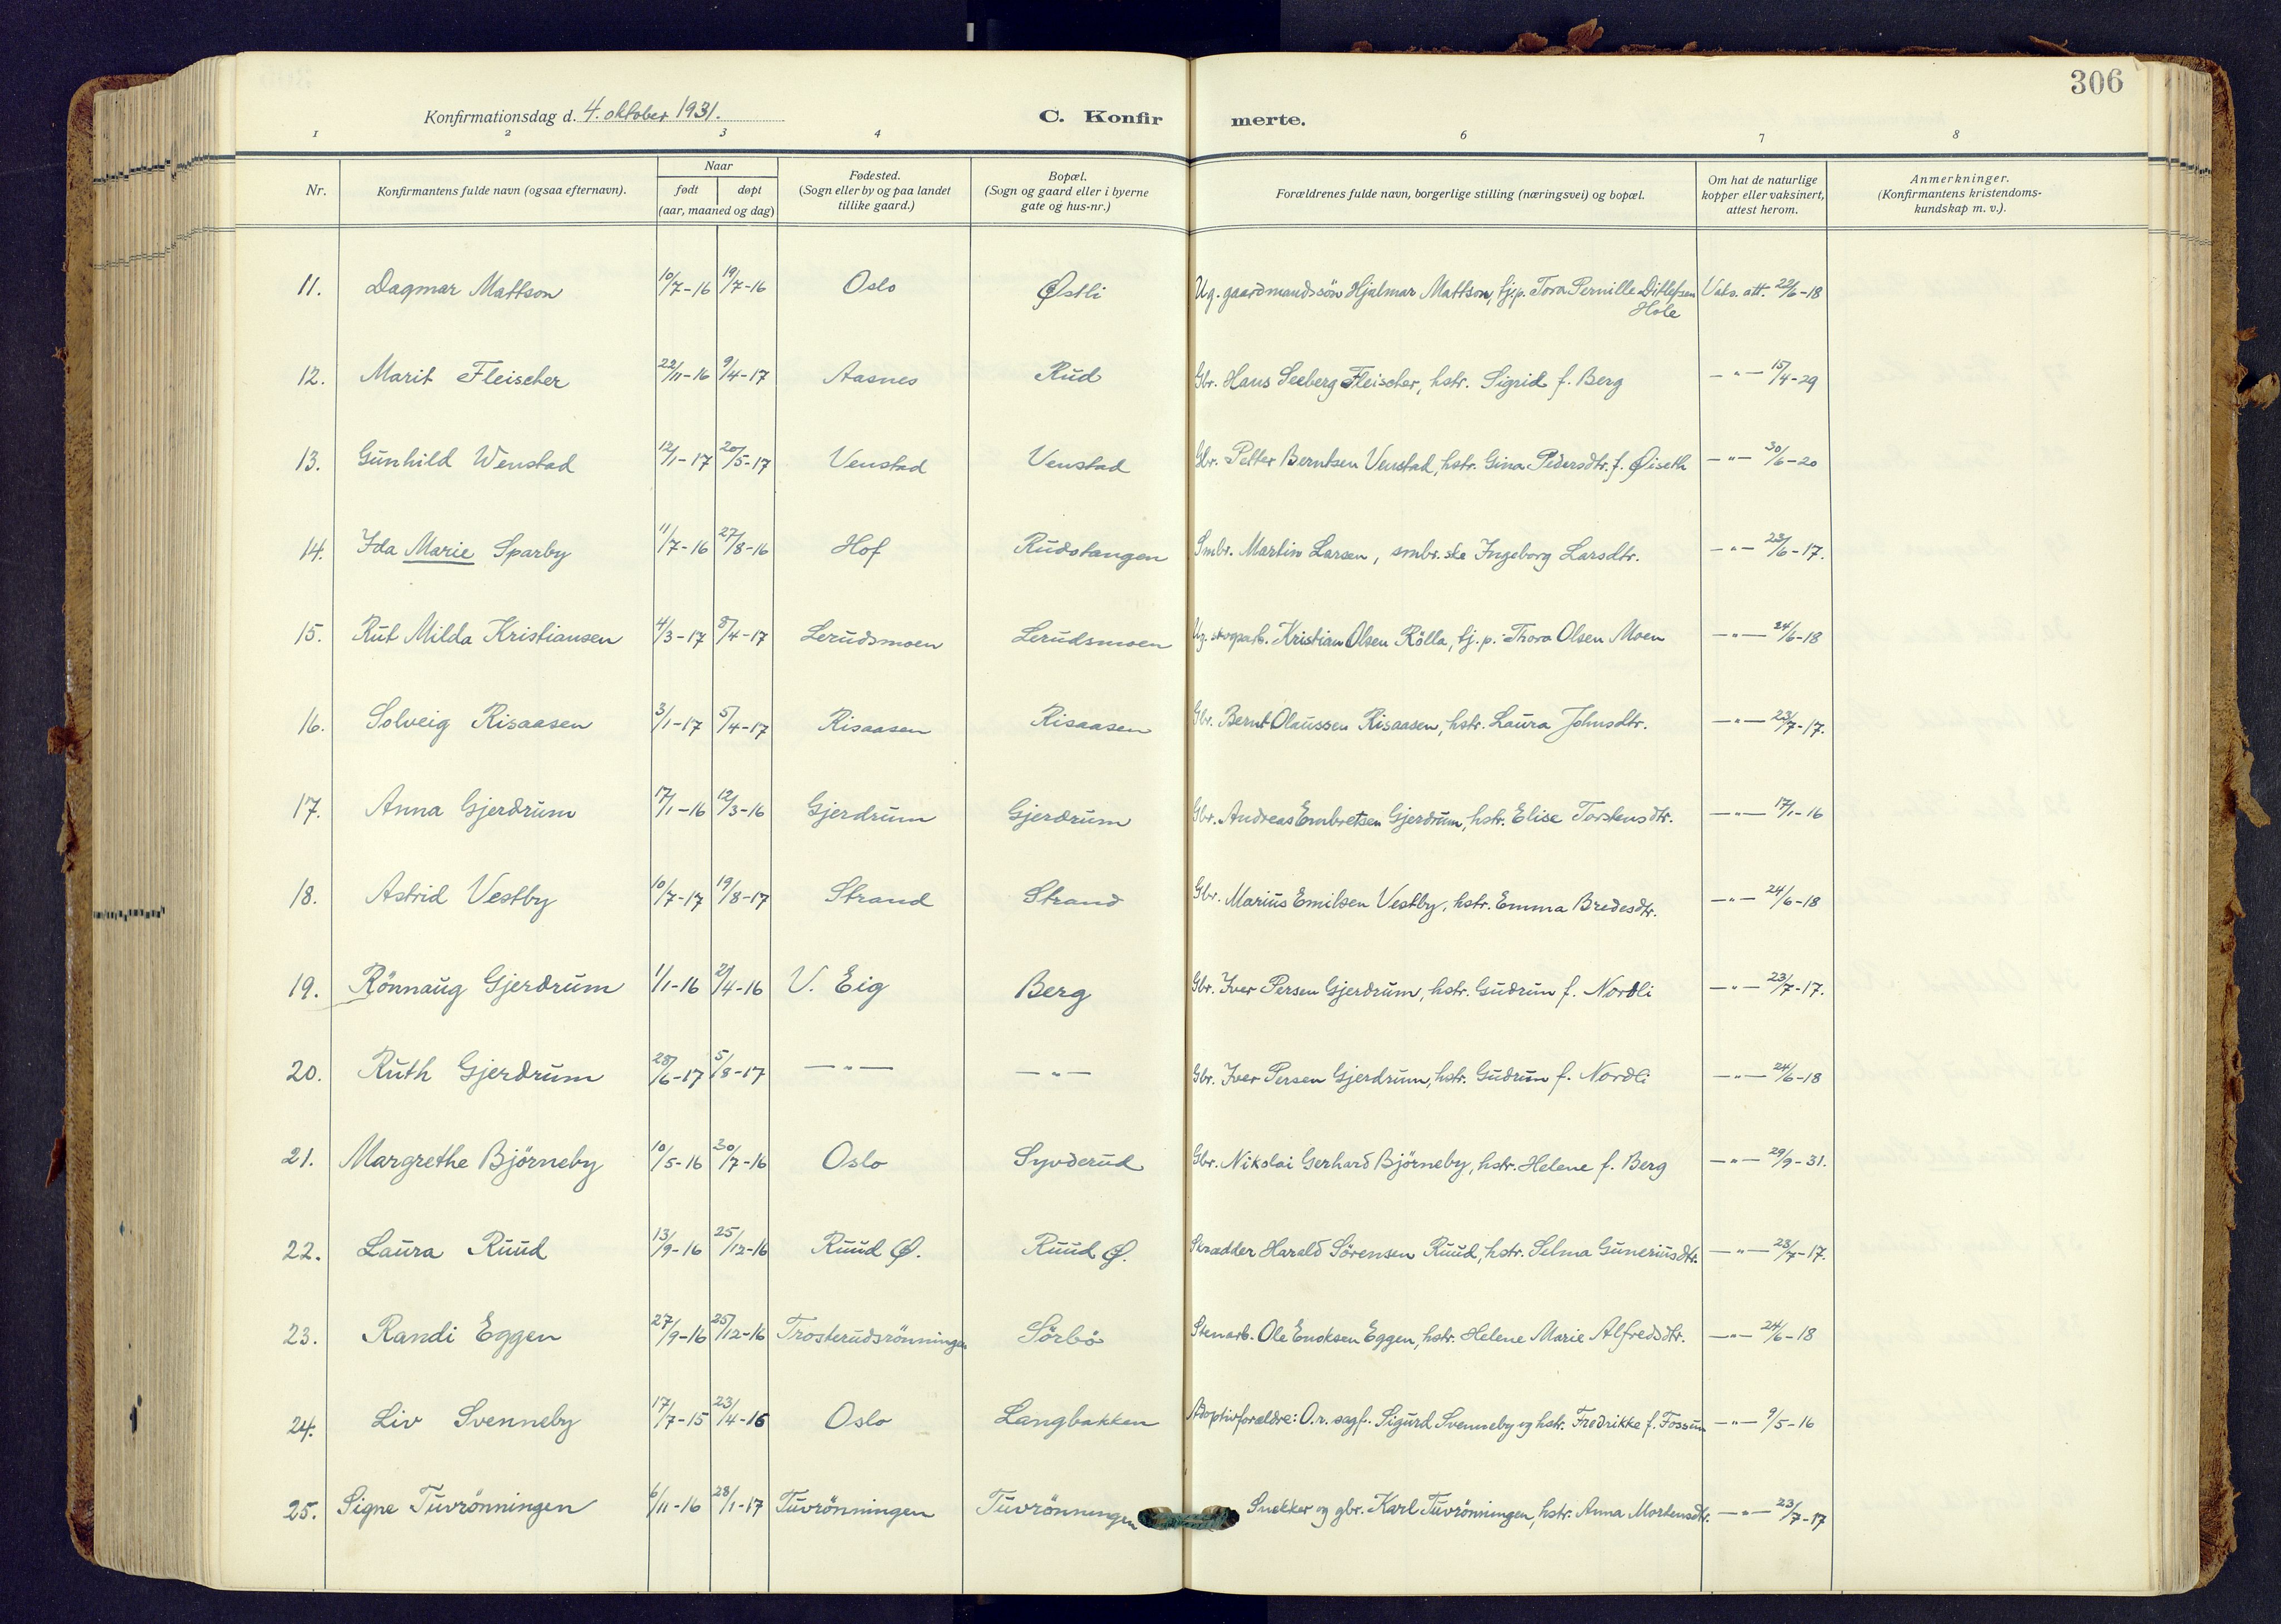 306
Konfirmationsdag d. 4. oktober 1931.
C. Konfirmerte.
1 2 3 4 6 7 8
Nr. Konfirmantens fulde navn (ogsaa efternavn). Naar født døpt (aar, maaned og dag) Fødested. (Sogn eller by og paa landet tillike gaard.) Bopæl. (Sogn og gaard eller i byerne gate og hus-nr.) Forældrenes fulde navn, borgerlige stilling (næringsvei) og bopæl. Om hat de naturlige kopper eller vaksinert, attest herom. Anmerkninger. (Konfirmantens kristendoms-kundskap m. v.).
11. Dagmar Mattson 10/7-16 19/7-16 Oslo Østli Ug. gaardmandssön Hjalmar Mattson, tjp. Tora Pernille Ditlefsen Hole Vaks. att. 22/6-18
12. Marit Fleischer 22/11-16 9/4-17 Aasnes Rud Gbr. Hans Seeberg Fleischer, hstr. Sigrid f. Berg —"— 15/4-29
13. Gunhild Wenstad 12/1-17 20/5-17 Venstad Venstad Gbr. Petter Berntsen Venstad, hstr. Gina Pedersdtr. f. Øiseth —"— 30/6-20
14. Ida Marie Sparby 11/7-16 27/8-16 Hof Rudstangen Smbr. Martin Larsen, smbr.ske Ingeborg Larsdtr. —"— 23/6-17.
15. Rut Milda Kristiansen 4/3-17 8/4-17 Lerudsmoen Lerudsmoen Ug. skogsarb. Kristian Olsen Rölla, tj. p. Thora Olsen Moen —"— 24/6-18
16. Solveig Risaasen 3/1-17 5/4-17 Risaasen Risaasen Gbr. Bernt Olaussen Risaasen, hstr. Laura Johnsdtr. —"— 23/7-17.
17. Anna Gjerdrum 17/1-16 12/3-16 Gjerdrum Gjerdrum Gbr. Andreas Embretsen Gjerdrum, hstr. Elise Torstensdtr. —"— 17/1-16
18. Astrid Vestby 10/7-17 19/8-17 Strand Strand Gbr. Marius Emilsen Vestby, hstr. Emma Bredesdtr. —"— 24/6-18
19. Rönnaug Gjerdrum 1/1-16 2/4-16 V. Eig Berg Gbr. Iver Persen Gjerdrum, hstr. Gudrun f. Nordli —"— 23/7-17.
20. Ruth Gjerdrum 28/6-17 5/8-17 —"— —"— Gbr. Iver Persen Gjerdrum, hstr. Gudrun f. Nordli —"— 24/6-18
21. Margrethe Björneby 10/5-16 30/7-16 Oslo Syvderud Gbr. Nikolai Gerhard Björneby, hstr. Helene f. Berg —"— 29/9-31.
22. Laura Ruud 13/9-16 25/12-16 Ruud Ø. Ruud Ø. Skrædder Harald Sörensen Ruud, hstr. Selma Guneriusdtr. —"— 23/7-17.
23. Randi Eggen 27/9-16 25/12-16 Trosterudsrönningen Sörbö Stenarb. Ole Enoksen Eggen, hstr. Helene Marie Alfredsdtr. —"— 24/6-18
24. Liv Svenneby 17/7-15 23/4-16 Oslo Langbakken Adoptivforældre: O.r. sagf. Sigurd Svenneby og hstr. Fredrikke f. Fossum —"— 9/5-16
25. Signe Tuvrönningen 6/11-16 28/1-17 Tuvrönningen Tuvrönningen Snekker og gbr. Karl Tuvrönningen, hstr. Anna Mortensdtr. —"— 23/7-17